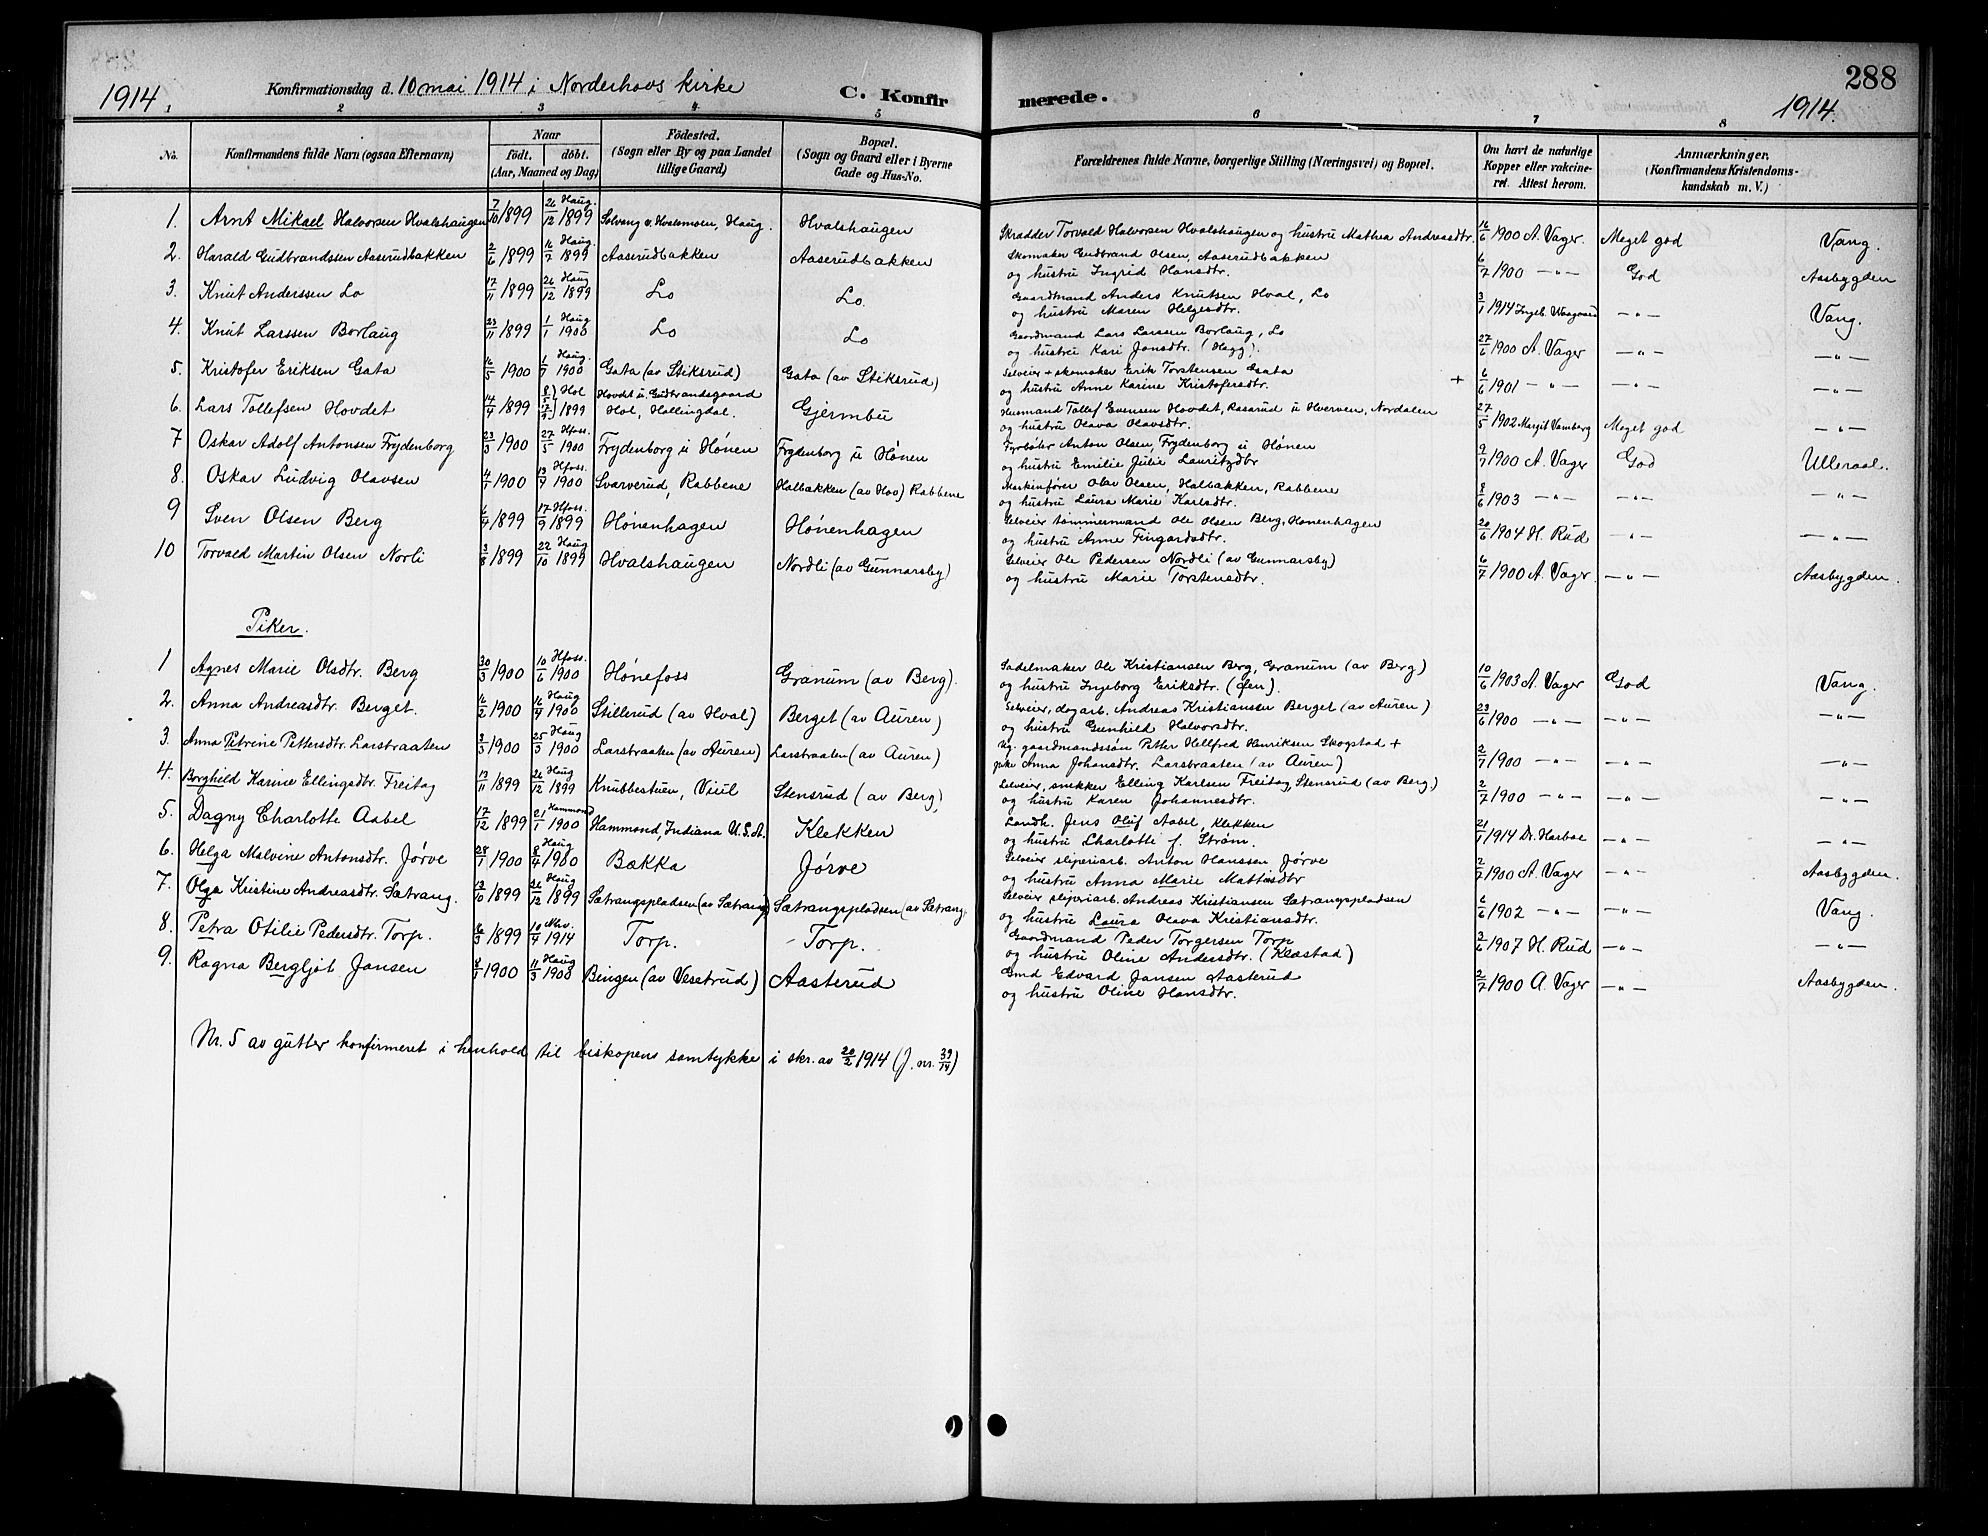 288
1914.
Konfirmationsdag d. 10 mai 1914 i Norderhovs kirke
C. Konfirmerede.
1914.
2 3 4 5 6 7 8
No.
Konfirmandens fulde Navn (ogsaa Efternavn)
Naar
født. døbt.
(Aar, Maaned og Dag)
Fødested.
(Sogn eller By og paa Landet
tillige Gaard)
Bopæl.
(Sogn og Gaard eller i Byerne
Gade og Hus-No.
Forældrenes fulde Navne, borgerlige Stilling (Næringsvei) og Bopæl.
Om havt de naturlige
Kopper eller vakcine-
ret. Attest herom.
Anmærkninger.
(Konfirmandens Kristendoms-
kundskab m. V.)
1. Arnt Mikael Halvorsen Hvalshaugen 7/10 1899 26/12 Haug. 1899 Solvang u. Hvalsmoen, Haug. Hvalshaugen Skrædder Torvald Halvorsen Hvalshaugen og hustru Mathea Andreasdtr. 16/6 1900 A. Vager. Meget god Vang.
2. Harald Gudbrandssen Aaserudbakken 2/6 1899 16/7 Haug. 1899 Aaserudbakken Aaserudbakken Skomaker Gudbrand Olsen, Aaserudbakken
og hustru Ingrid Hansdtr. 6/7 1900 —"— God Aasbygden
3. Knut Anderssen Lo 17/11 1899 26/12 Haug 1899 Lo Lo. Gaardmand Anders Knutsen Hval, Lo
og hustru Maren Helgesdtr. 3/1 1914 Ingeb. Waagaard —"— Vang.
4. Knut Larssen Borlaug 23/11 1899 1/1 Haug 1900 Lo Lo Gaardmand Lars Larssen Borlaug, Lo
og hustru Kari Jonsdtr. (Hegg). 27/6 1900 A. Vager —"— —"—
5. Kristofer Eriksen Gata 16/5 1900 1/7 Haug. 1900 Gata (av Stiksrud) Gata (av Stiksrud) Selveier + skomaker Erik Torstensen Gata
og hustru Anne Karine Kristofersdtr. + 6/6 1901 —"— —"— —"—
6. Lars Tollefsen Hovdet 14/4 1899 8/5 17/9 Hol 1899 Hovdet u. Gudbrandsgaard
Hol, Hallingdal. Gjermbu Husmand Tollef Evensen Hovdet, Rasarud u Hverven, Nordalen
og hustru Olava Olavsdtr. 27/5 1902 Margit Vamberg Meget god —"—
7 Oskar Adolf Antonsen Frydenborg 23/3 1900 27/5 Hfoss. 1900 Frydenborg u Hønen Frydenborg u Hønen Fyrbøter Anton Olsen, Frydenborg u Hønen
og hustru Emilie Julie Lauritzdtr 9/7 1900 A. Vager God Ulleraal.
8. Oskar Ludvig Olavsen 4/7 1900 19/9 Hfoss. 1900 Svarverud, Rabbene Halbakken (av Hov) Rabbene Maskinfører Olav Olsen, Halbakken, Rabbene
og hustru Laura Marie Karlsdtr. 8/6 1903 —"— —"— —"—
9 Sven Olsen Berg 6/4 1899 17/9 Hfoss 1899 Hønenhagen Hønenhagen Selveier tømmermand Ole Olsen Berg, Hønenhagen
og hustru Anne Fingarsdtr. 20/6 1904 H. Rud —"— —"—
10 Torvald Martin Olsen Norli 3/8 1899 22/10 Haug 1899 Hvalshaugen Nordli (av Gunnarsby) Selveier Ole Pedersen Nordli (av Gunnarsby)
og hustru Marie Torstensdtr. 6/7 1900 A. Vagr —"— Aasbygden.
Piker.
1 Agnes Marie Olsdtr. Berg 30/3 1900 10/6 Hfoss. 1900 Hønefoss Granum (av Berg). Sadelmaker Ole Kristiansen Berg, Granum (av Berg)
og hustru Ingeborg Eriksdtr. (Øen). 10/6 1903 A. Vager God Vang.
2. Anna Andreasdtr. Berget. 16/2 1900 16/4 Haug 1900 Stillerud (av Hval) Berget (av Auren) Selveier, dagarb. Andreas Kristiansen Berget (av Auren)
og hustru Gunhild Halvorsdtr. 23/6 1900 —"— —"— —"—
3. Anna Petrine Pettersdtr. Larstraaten 3/3 1900 25/3 Haug 1900 Larstraaten (av Auren) Larstraaten (av Auren) Ug. gaardmandssøn Petter Hellfred Henriksen Skogstad +
pike Anna Johansdtr. Larstraaten (av Auren) 2/7 1900 —"— —"— —"—
4. Borghild Karine Ellingsdtr. Freitag 13/11 1899 26/12 Haug 1899 Knubbestuen, Viul Stensrud (av Berg) Selveier, snekker Elling Karlsen Freitag Stensrud (av Berg)
og hustru Karen Johannesdtr. 2/7 1900 —"— —"— —"—
5. Dagny Charlotte Aabel 17/12 1899 21/1 Hammond 1900 Hammond, Indiana U.S.A. Klekken Landh. Jens Oluf Aabel, Klekken
og hustru Charlotte f. Strøm. 21/1 1914 Dr. Harboe —"— —"—
6. Helga Malvine Antonsdtr. Jørve 28/1 1900 8/4 Haug 1900 Bækka Jørve Selveier sliperiarb. Anton Hanssen Jørve
og hustru Anna Marie Mattisdtr 2/7 1900 A. Vager —"— Aasbygden.
7. Olga Kristine Andreasdtr. Sætrang. 13/10 1899 26/12 Haug 1899 Sætrangspladsen (av Sætrang) Sætrangspladsen (av Sætrang. Selveier sliperiarb. Andreas Kristiansen Sætrangspladsen
og hustru Laura Olava Kristiansdtr. 6/6 1902 —"— —"— Vang.
8. Petra Otilie Pedersdtr. Torp. 6/3 1899 10/4 Nhv. 1914 Torp. Torp. Gaardmand Peder Torgersen Torp
og hustru Oline Andersdtr. (Klæstad) 3/6 1907 H. Rud —"— —"—
9. Ragna Bergljot Jansen 8/1 1900 11/3 Haug 1900 Bingen (av Vesetrud) Aasterud Gmd Edvard Jansen Aasterud
og hustru Oline Hansdtr. 2/7 1900 A. Vager —"— Aasbygden.
Nr. 5 av gutter konfirmeret i henhold til biskopens samtykke i skr. av 20/2 1914 (J. nr. 39/14)